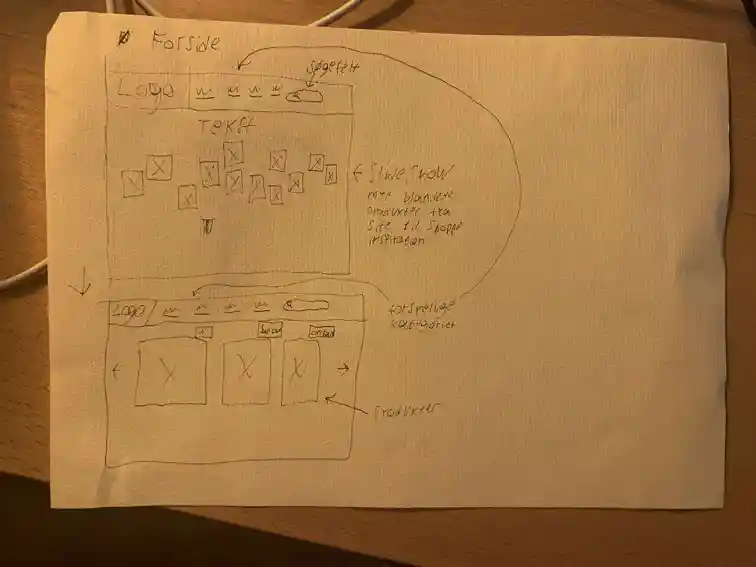 Forside
søgefelt
Logo
Tekst
Slideshow
med blandede
produkter fra
site til shoppe
inspiration
Logo
forskellige
kategorier
produkter